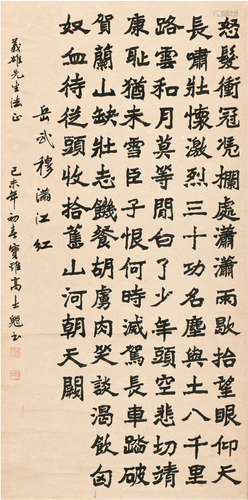 怒髮衝冠凴欄處瀟瀟雨歇抬望眼仰天
長嘯壯懷激烈三十功名塵與土八千里
路雲和月莫等閒白了少年頭空悲切靖
康恥猶未雪臣子恨何時滅駕長車踏破
賀蘭山缺壯志饑餐胡虜肉笑談渴飲匈
奴血待從頭收拾舊山河朝天闕
岳武穆滿江紅
義雄先生法正
己未年初春寶雞高士魁書